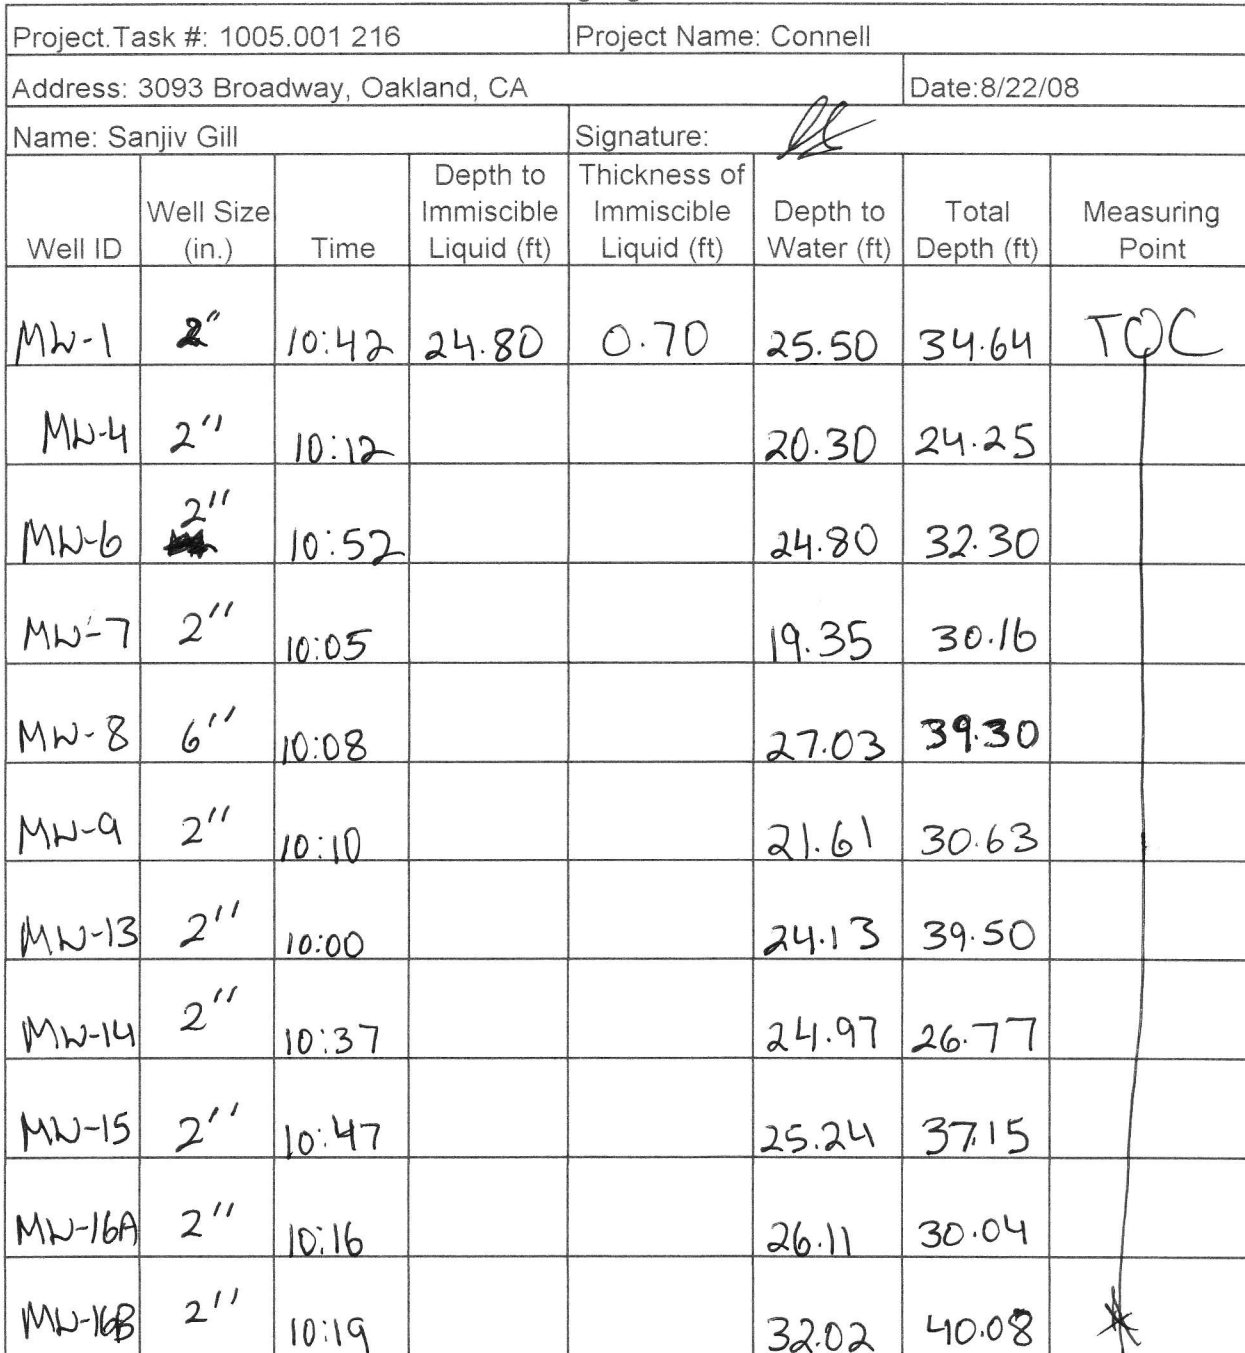 Project.Task #: 1005.001 216 Project Name: Connell
Address: 3093 Broadway, Oakland, CA Date:8/22/08
Name: Sanjiv Gill Signature:
Well ID Well Size (in.) Time Depth to Immiscible Liquid (ft) Thickness of Immiscible Liquid (ft) Depth to Water (ft) Total Depth (ft) Measuring Point
MW-1 2" 10:42 24.80 0.70 25.50 34.64 TOC
MW-4 2" 10:12 20.30 24.25
MW-6 2" 10:52 24.80 32.30
MW-7 2" 10:05 19.35 30.16
MW-8 6" 10:08 27.03 39.30
MW-9 2" 10:10 21.61 30.63
MW-13 2" 10:00 24.13 39.50
MW-14 2" 10:37 24.97 26.77
MW-15 2" 10:47 25.24 37.15
MW-16A 2" 10:16 26.11 30.04
MW-16B 2" 10:19 32.02 40.08